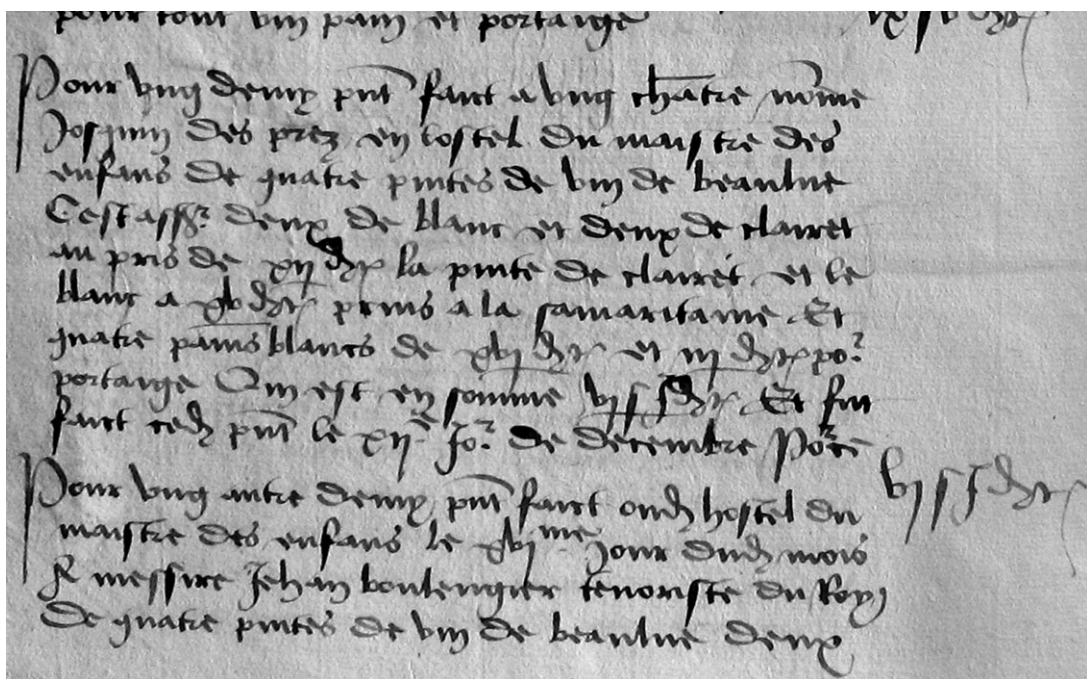 pour tout vin pain et portaige ix s v d t
Pour ung demy pñt faict a ung chãtre nõme
Josquin des prez en lostel du maistre des
enfans de quatre pintes de vin de beaulne
Cest assr deux de blanc et deux de clairet
au pris de xij d t la pinte de clairet et le
blanc a xv d t prins a la samaritaine Et
quatre pains blancs de xvj d t et iij d t por
portaige Qui est en somme vj s j d t Et fut
faict cedz pñt le xije Jor de decembre Por ce
vj s j d t
Pour ung autre demy pñt faict oudz hostel du
maistre des enfans le xvjme Jour dudz mois
A messire Jehan boulengier tenoriste du Roy
De quatre pintes de vin de beaulne deux